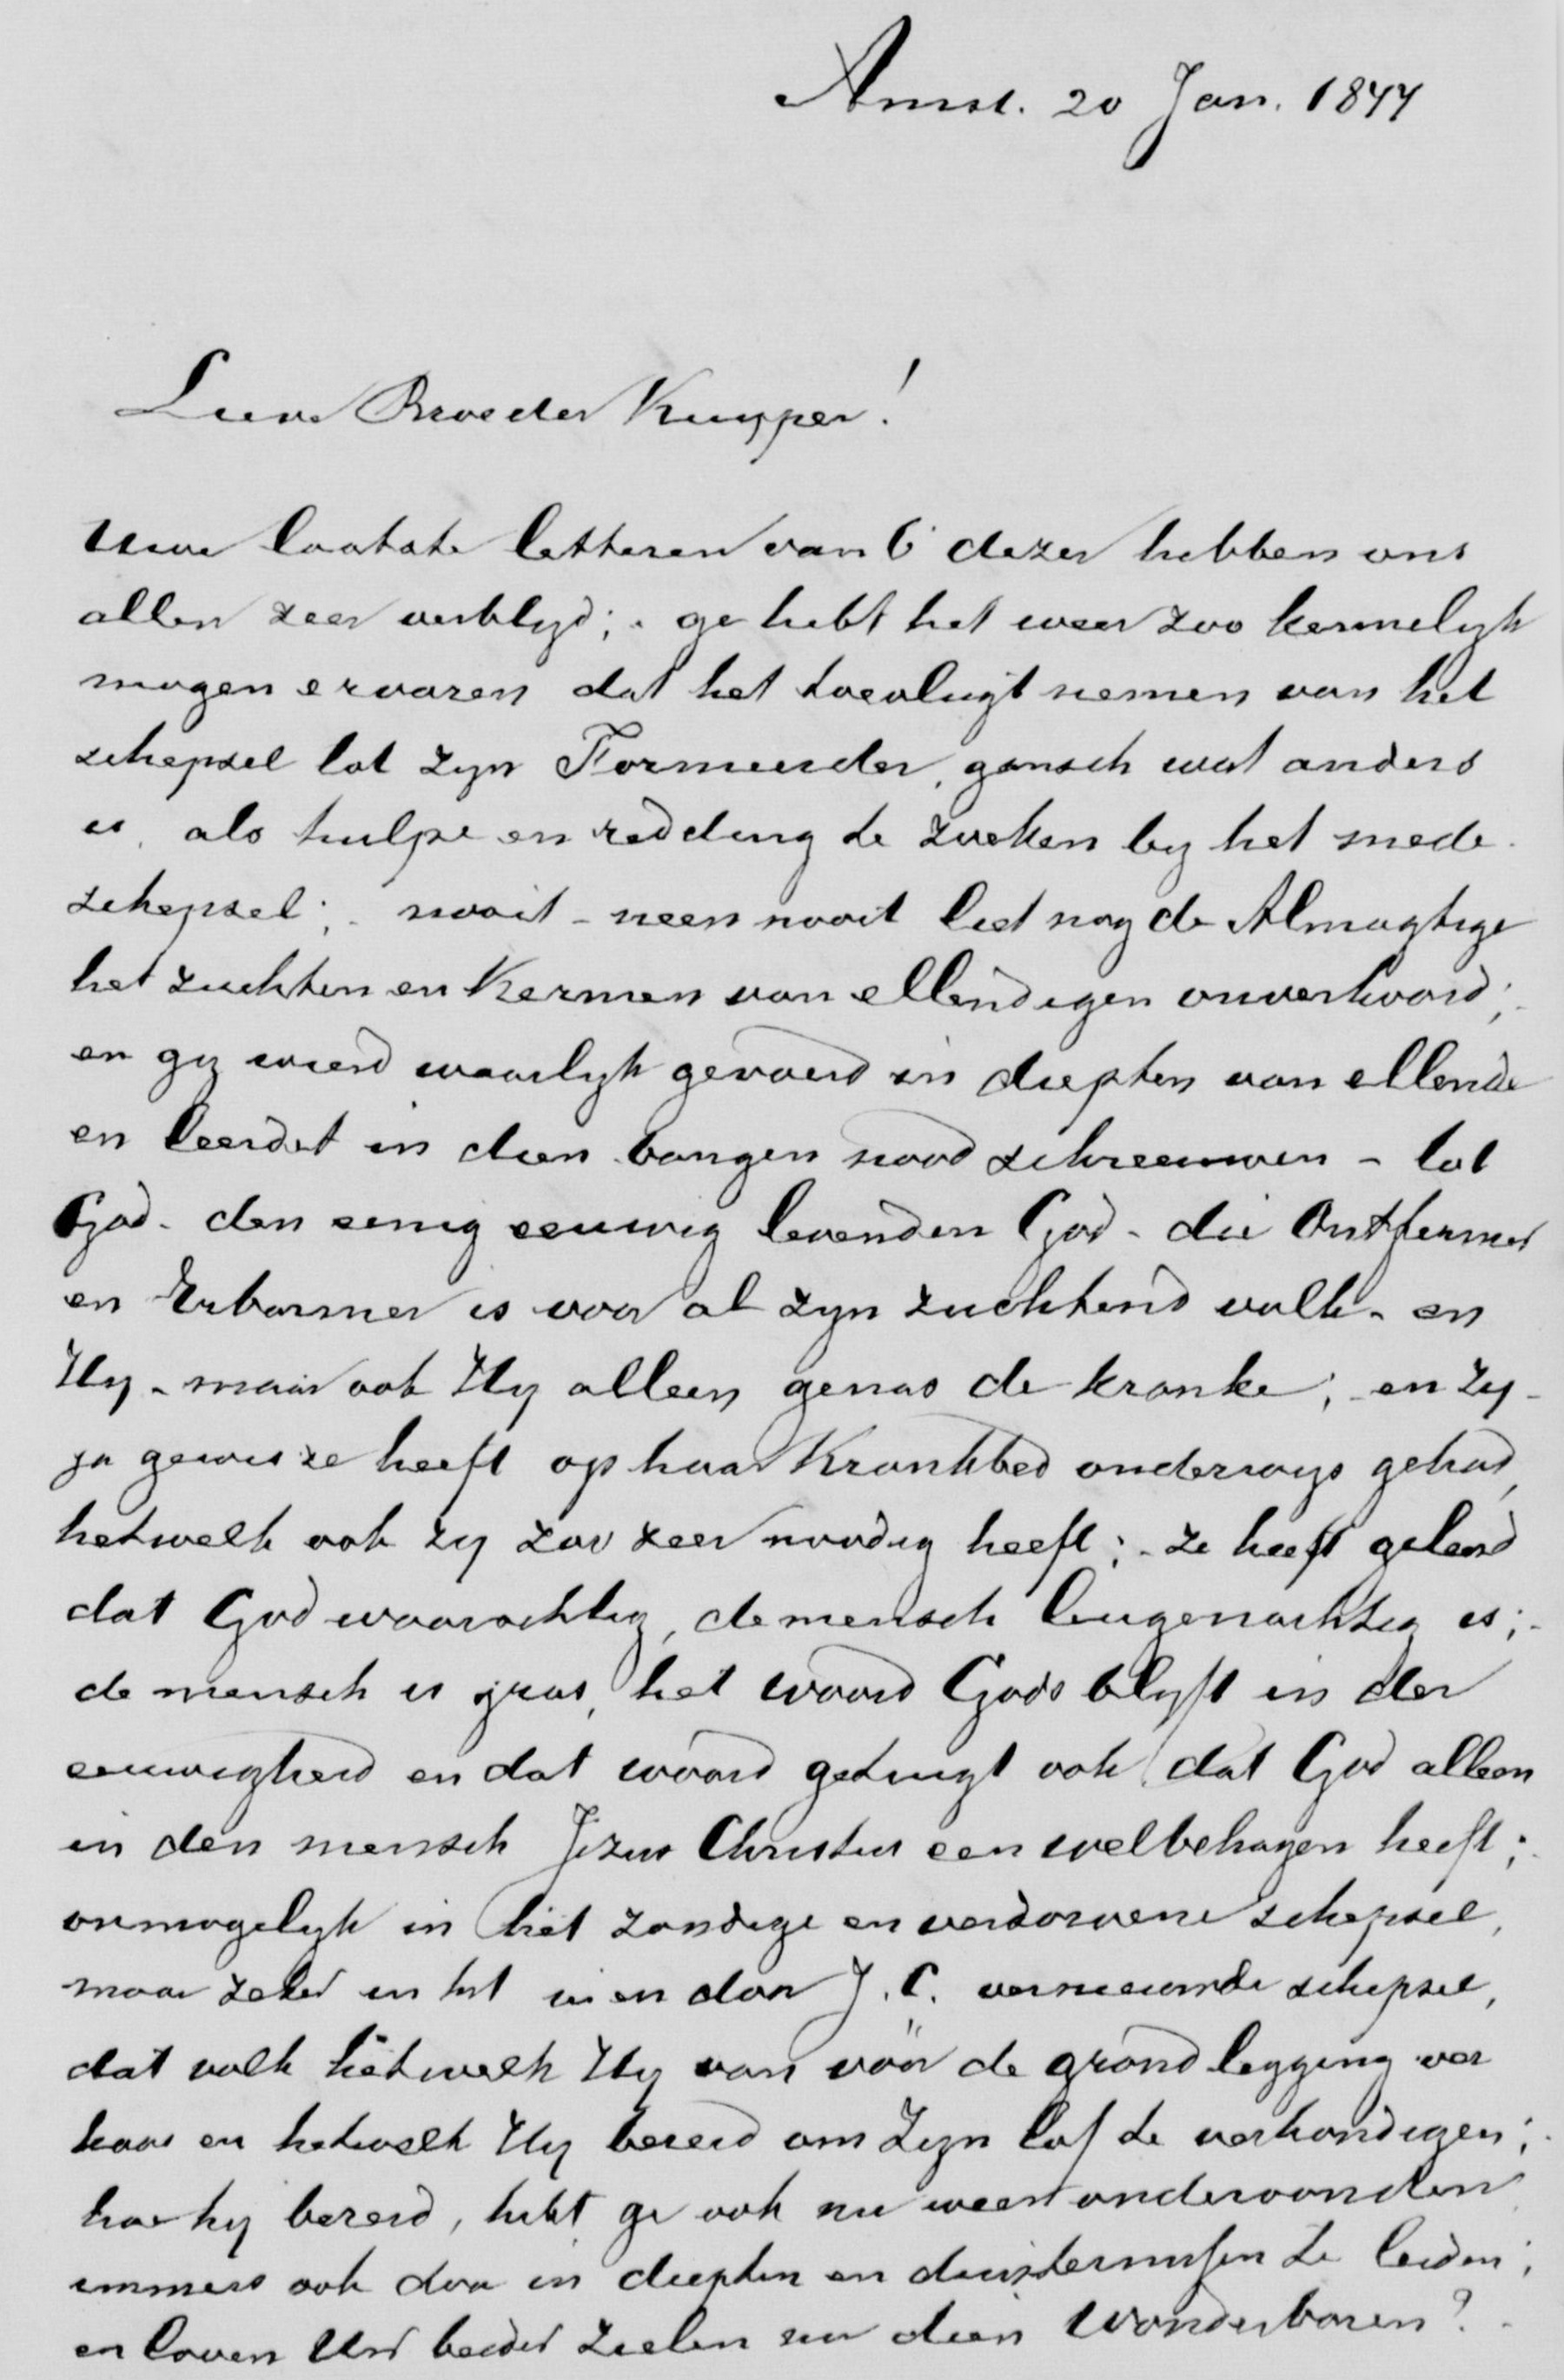 Amst. 20 Jan. 1844
Lieve Broeder Kuyper!
Uwe laatste letteren van 6 dezer hebben ons
allen zeer verblyd; - ge hebt het weer zoo kennelyk
mogen ervaren dat het toevlugt nemen van het
schepsel tot zyn Formeerder, gansch wat anders
is, als hulpe en redding te zoeken by het mede-
schepsel; - nooit - neen nooit liet nog de Almagtige
het zuchten en kermen van ellendigen onverhoord; -
en gy wierd waarlyk gevoerd in diepten van ellende
en leerdet in dien bangen nood schreeuwen - tot
God - den eenig eeuwig levenden God - die Ontfermer
en Erbarmer is voor al zyn zuchtend volk - en
Hy - maar ook Hy alleen genas de kranke; - en zy -
ja gewis ze heeft op haar Krankbed onderwys gehad,
hetwelk ook zy zoo zeer noodig heeft; - ze heeft geleerd
dat God waarachtig, de mensch leugenachtig is; -
de mensch is gras, het woord Gods blyft in der
eeuwigheid en dat woord getuigt ook dat God alleen
in den mensch Jezus Christus een welbehagen heeft; -
onmogelyk in het zondige en verdorvene schepsel,
maar zeker in het in en door J. C. vernieuwde schepsel,
dat volk hetwelk Hy van vóór de grondlegging ver
koos en hetwelk Hy bereid om Zyn lof te verkondigen; -
hoe hy bereid, hebt ge ook nu weer ondervonden
immers ook door in diepten en duisternissen te leiden;
en loven Uw beider zielen nu dien Wonderbaren? -